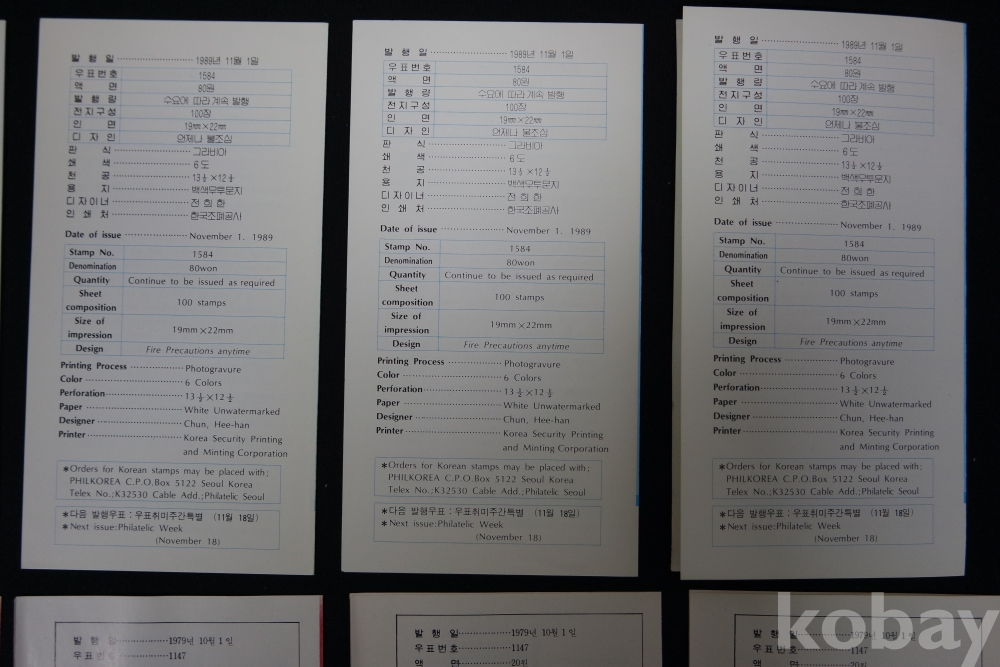 발 행 일 ········ 1989년 11월 1일
우표번호 1584
액 면 80원
발 행 량 수요에 따라 계속 발행
전지구성 100장
인 면 19㎜×22㎜
디 자 인 언제나 불조심
판 식 ········ 그라비아
쇄 색 ········ 6도
천 공 ········ 13½×12½
용 지 ········ 백색무투문지
디자이너 ········ 전 희 한
인 쇄 처 ········ 한국조폐공사
Date of issue ········ November 1. 1989
Stamp No. 1584
Denomination 80won
Quantity Continue to be issued as required
Sheet
composition 100 stamps
Size of
impression 19mm×22mm
Design Fire Precautions anytime
Printing Process ········ Photogravure
Color ········ 6 Colors
Perforation ········ 13½×12½
Paper ········ White Unwatermarked
Designer ········ Chun, Hee-han
Printer ········ Korea Security Printing
and Minting Corporation
*Orders for Korean stamps may be placed with;
PHILKOREA C.P.O.Box 5122 Seoul Korea
Telex No.;K32530 Cable Add.;Philatelic Seoul
*다음 발행우표 : 우표취미주간특별 (11월 18일)
*Next issue:Philatelic Week
(November 18)
발 행 일 ········ 1989년 11월 1일
우표번호 1584
액 면 80원
발 행 량 수요에 따라 계속 발행
전지구성 100장
인 면 19㎜×22㎜
디 자 인 언제나 불조심
판 식 ········ 그라비아
쇄 색 ········ 6도
천 공 ········ 13½×12½
용 지 ········ 백색무투문지
디자이너 ········ 전 희 한
인 쇄 처 ········ 한국조폐공사
Date of issue ········ November 1. 1989
Stamp No. 1584
Denomination 80won
Quantity Continue to be issued as required
Sheet
composition 100 stamps
Size of
impression 19mm×22mm
Design Fire Precautions anytime
Printing Process ········ Photogravure
Color ········ 6 Colors
Perforation ········ 13½×12½
Paper ········ White Unwatermarked
Designer ········ Chun, Hee-han
Printer ········ Korea Security Printing
and Minting Corporation
*Orders for Korean stamps may be placed with;
PHILKOREA C.P.O.Box 5122 Seoul Korea
Telex No.;K32530 Cable Add.;Philatelic Seoul
*다음 발행우표 : 우표취미주간특별 (11월 18일)
*Next issue:Philatelic Week
(November 18)
발 행 일 ········ 1989년 11월 1일
우표번호 1584
액 면 80원
발 행 량 수요에 따라 계속 발행
전지구성 100장
인 면 19㎜×22㎜
디 자 인 언제나 불조심
판 식 ········ 그라비아
쇄 색 ········ 6도
천 공 ········ 13½×12½
용 지 ········ 백색무투문지
디자이너 ········ 전 희 한
인 쇄 처 ········ 한국조폐공사
Date of issue ········ November 1. 1989
Stamp No. 1584
Denomination 80won
Quantity Continue to be issued as required
Sheet
composition 100 stamps
Size of
impression 19mm×22mm
Design Fire Precautions anytime
Printing Process ········ Photogravure
Color ········ 6 Colors
Perforation ········ 13½×12½
Paper ········ White Unwatermarked
Designer ········ Chun, Hee-han
Printer ········ Korea Security Printing
and Minting Corporation
*Orders for Korean stamps may be placed with;
PHILKOREA C.P.O.Box 5122 Seoul Korea
Telex No.;K32530 Cable Add.;Philatelic Seoul
*다음 발행우표 : 우표취미주간특별 (11월 18일)
*Next issue:Philatelic Week
(November 18)
발 행 일 ········ 1979년 10월 1일
우표번호 ········ 1147
발 행 일 ········ 1979년 10월 1일
우표번호 ········ 1147
액 면 ········ 20원
발 행 일 ········ 1979년 10월 1일
우표번호 ········ 1147
액 면 ········ 20원
kobay